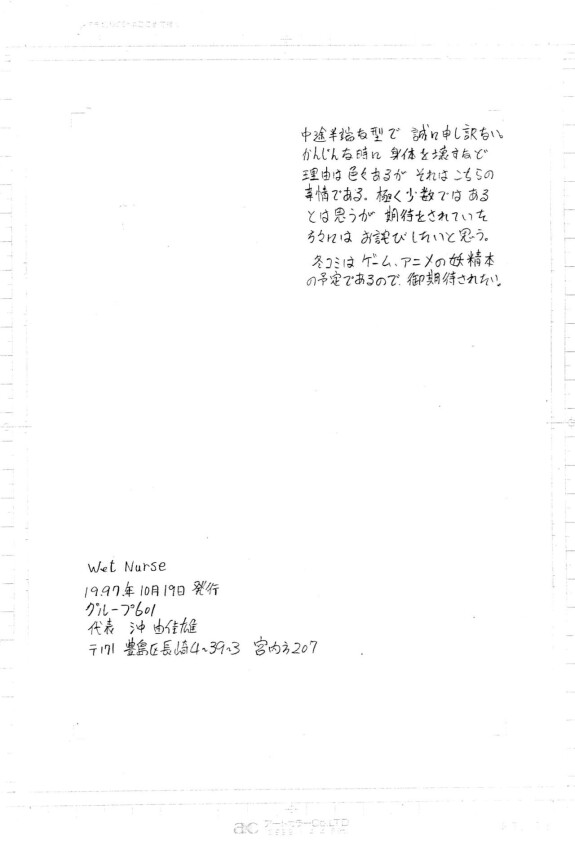 中途半端な型で 誠に申し訳ない。
かんじんな時に 身体を壊すなど
理由は色々あるが それはこちらの
事情である。極く少数では ある
とは思うが 期待をされていた
方々には お詫びしたいと思う。
冬コミは ゲーム、アニメの妖精本
の予定であるので、御期待されたい。
Wet Nurse
1997.年10月19日 発行
グループ601
代表 沖 由佳雄
〒171 豊島区長崎4-39-3 宮内方207